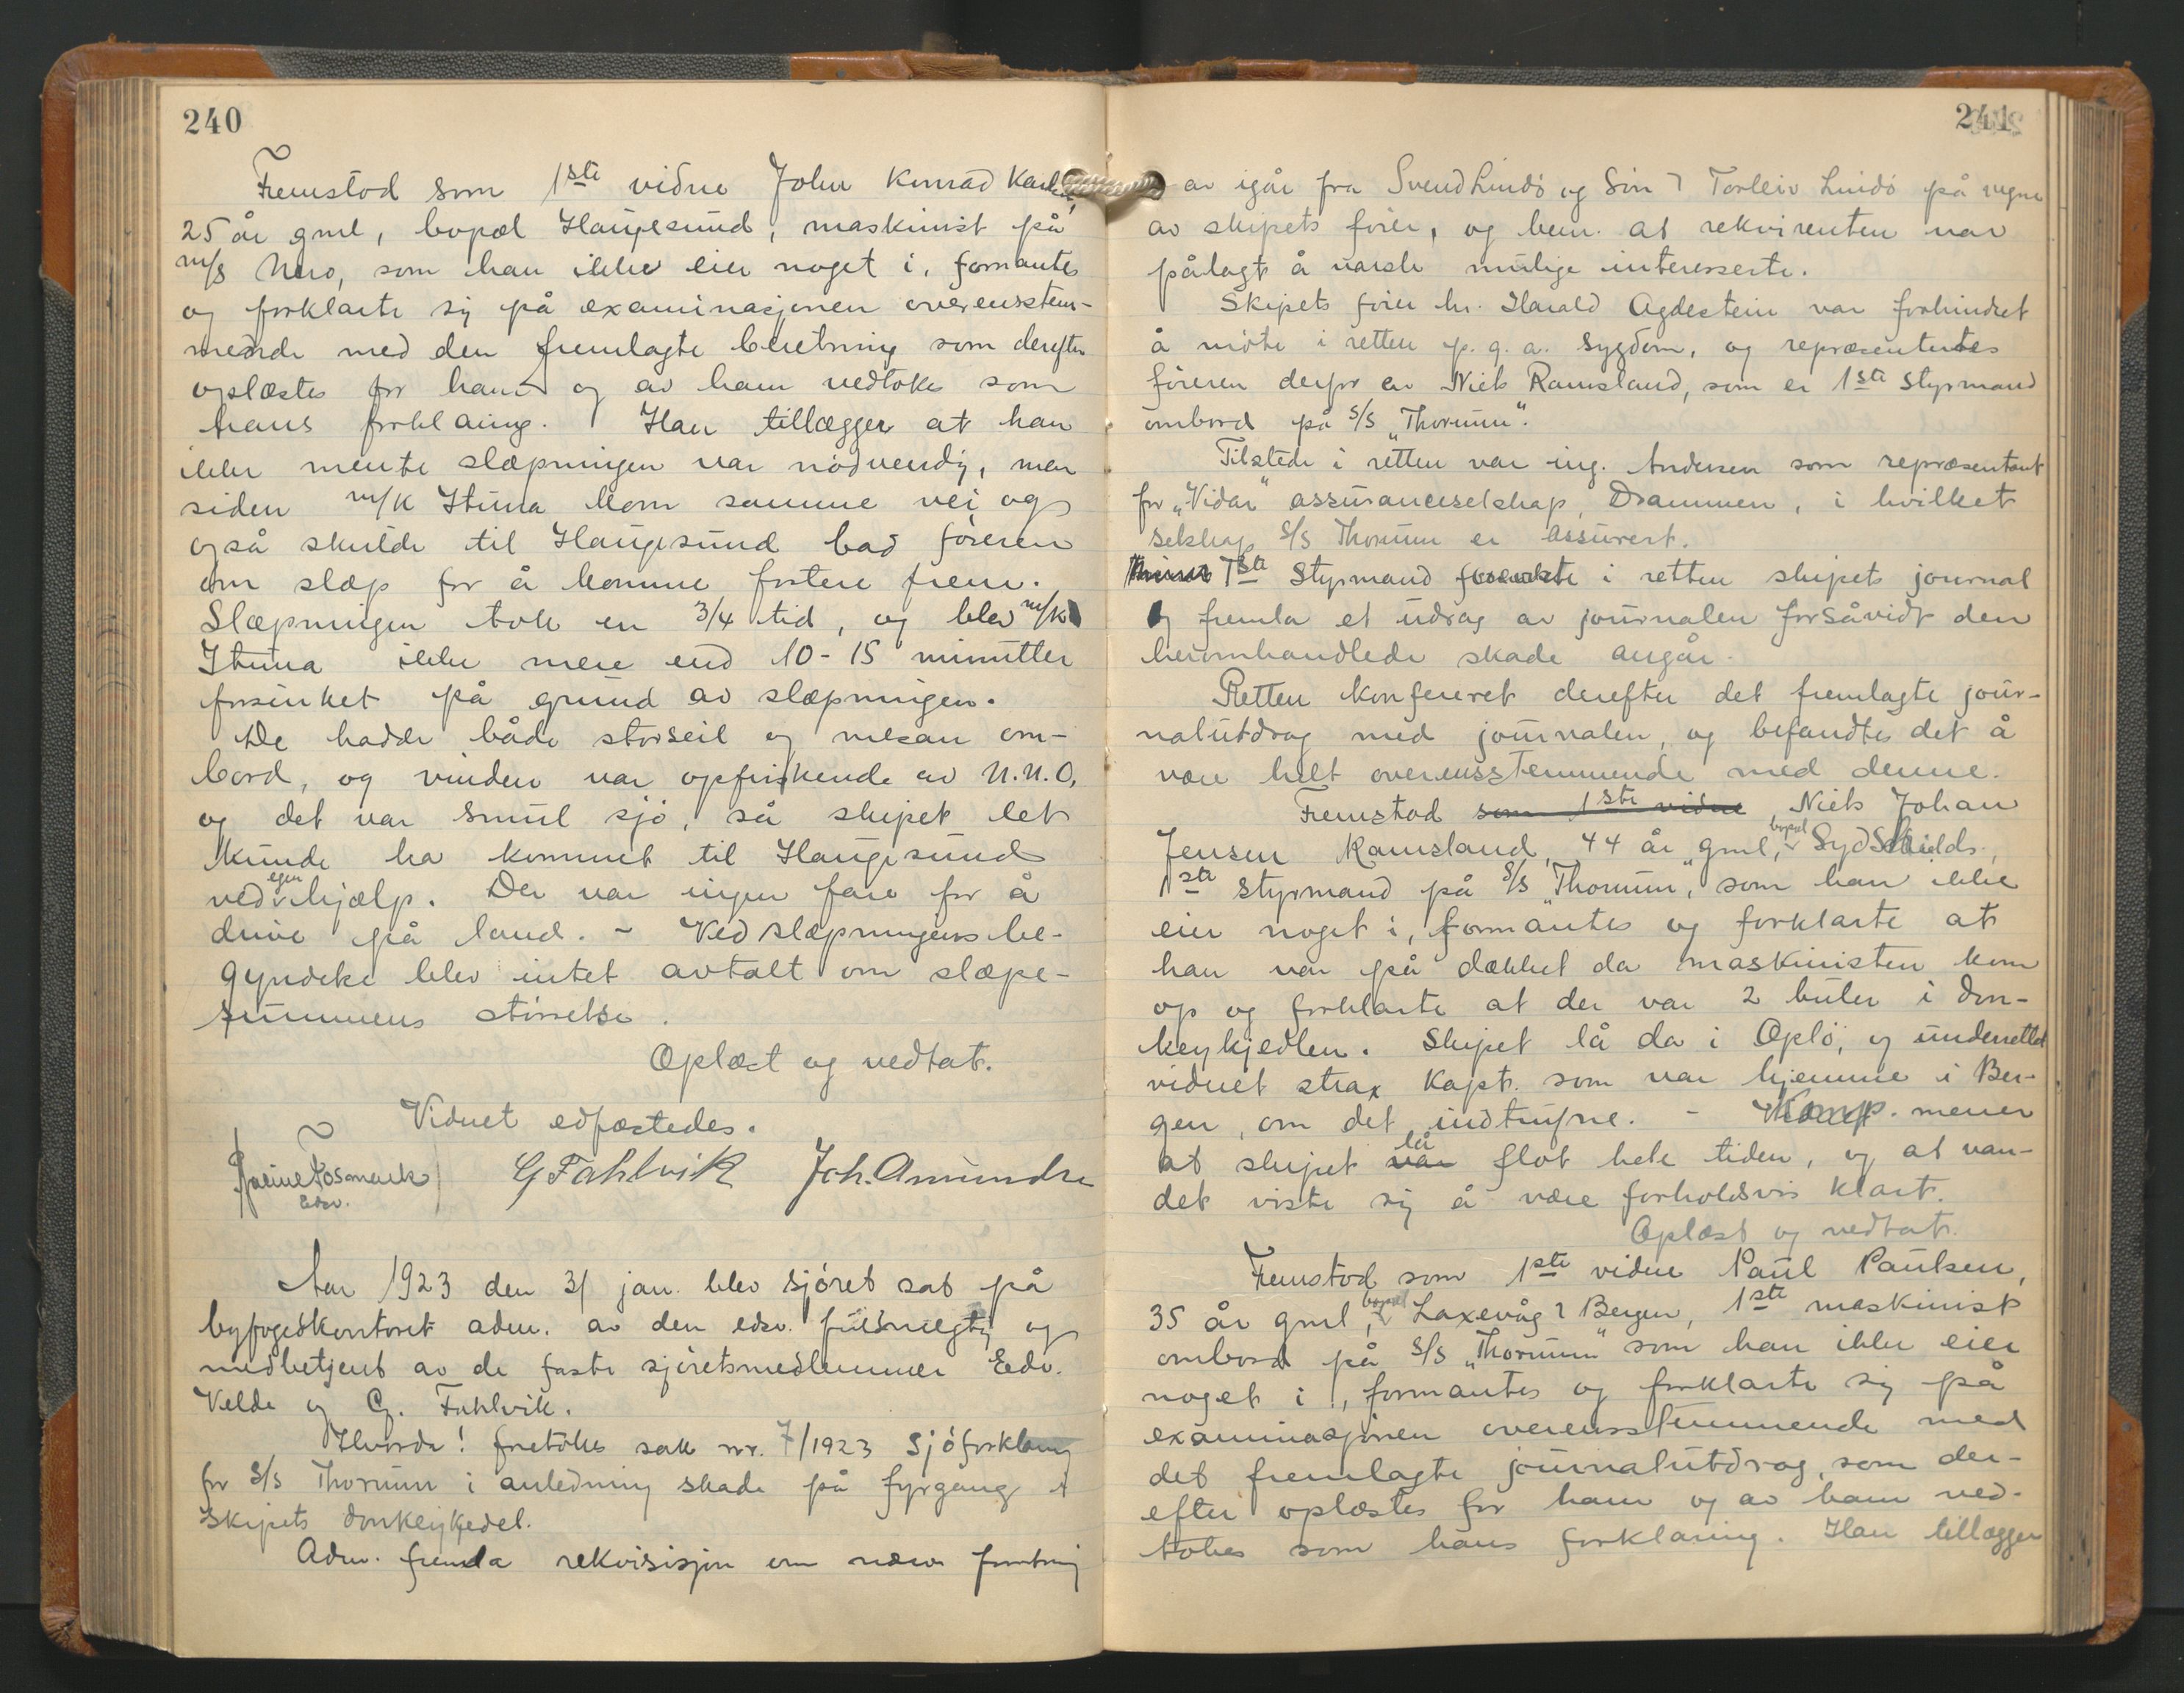 240
Fremstod som 1ste vidne John Konrad
25 år gml, bopæl Haugesund, maskinist på
m/s Nero, som han ikke eier noget i, formantes
og forklarte sig på examinasjonen overensstem-
mende med den fremlagte beretning som derefter
oplæstes for ham og av ham vedtokes som
hans forklaring. Han tillægger at han
ikke mente slæpningen var nødvendig, men
siden m/k Ituna kom samme vei og
også skulde til Haugesund bad føreren
om slæp for å komme fortere frem.
Slæpningen tok en 3/4 tid, og blev m/k
Ituna ikke mere end 10-15 minutter
forsinket på grund av slæpningen.
De hadde både storseil og mesan om-
bord, og vinden var opfriskende av N.N.O,
og det var smul sjø, så skipet let
kunde ha kommet til Haugesund
ved egen hjælp. Der var ingen fare for å
drive på land. - Ved slæpningens be-
gyndelse blev intet avtalt om slæpe-
summens størrelse.
Oplæst og vedtat.
Vidnet edfæstedes.
Fosmark G Fahlvik Joh. Amundsen
Edsv.
Aar 1923 den 31 jan. blev sjøret sat på
byfogedkontoret adm. av den edsv. fuldmegtig og
medbetjent av de faste sjøretsmedlemmer Edv.
Velde og G. Fahlvik.
Hvorda! foretokes sak nr. 7/1923 Sjøforklaring
for S/S Thorunn i anledning skade på fyrgang i
skipets donkeykjedel.
Adm. fremla rekvisisjon om nærv. forretning
241
av igår fra Svend Lindø og Søn v/ Torleiv Lindø på vegne
av skipets fører, og bem. at rekvirenten var
pålagt å varsle mulige interesserte.
Skipets fører hr. Harald Agdestein var forhindret
å møte i retten p. g. a. sygdom, og repræsentertes
føreren derfor av Niels Ramsland, som er 1ste styrmand
ombord på S/S "Thorunn".
Tilstede i retten var ing. Andersen som repræsentant
for "Vidar" assuranceselskap, Drammen, i hvilket
selskap S/S Thorunn er assurert.
1ste Styrmand fremla i retten skipets journal
og fremla et udrag av journalen forsåvidt den
heromhandlede skade angår.
Retten konfereret derefter det fremlagte jour-
nalutdrag med journalen, og befandtes det å
være helt overensstemmende med denne.
Fremstod som 1ste vidne Niels Johan
Jensen Ramsland, 44 år gml, bopæl Syd Shields,
1ste styrmand på S/S "Thorunn", som han ikke
eier noget i, formantes og forklarte at
han var på dækket da maskinisten kom
op og forklarte at der var 2 buler i don-
keykjedlen. Skipet lå da i Oplø, og underrettet
vidnet strax kapt. som var hjemme i Ber-
gen, om det indtrufne. - Komp. mener
at skipet var lå flot hele tiden, og at van-
det viste sig å være forholdsvis klart.
Oplæst og vedtat.
Fremstod som 1ste vidne Paul Paulsen,
35 år gml, bopæl Laxevåg v/ Bergen, 1ste maskinist
ombord på S/S "Thorunn" som han ikke eier
noget i, formantes og forklarte sig på
examinasjonen overensstemmende med
det fremlagte journalutdrag, som der-
efter oplæstes for ham og av ham ved-
tokes som hans forklaring. Han tillægger